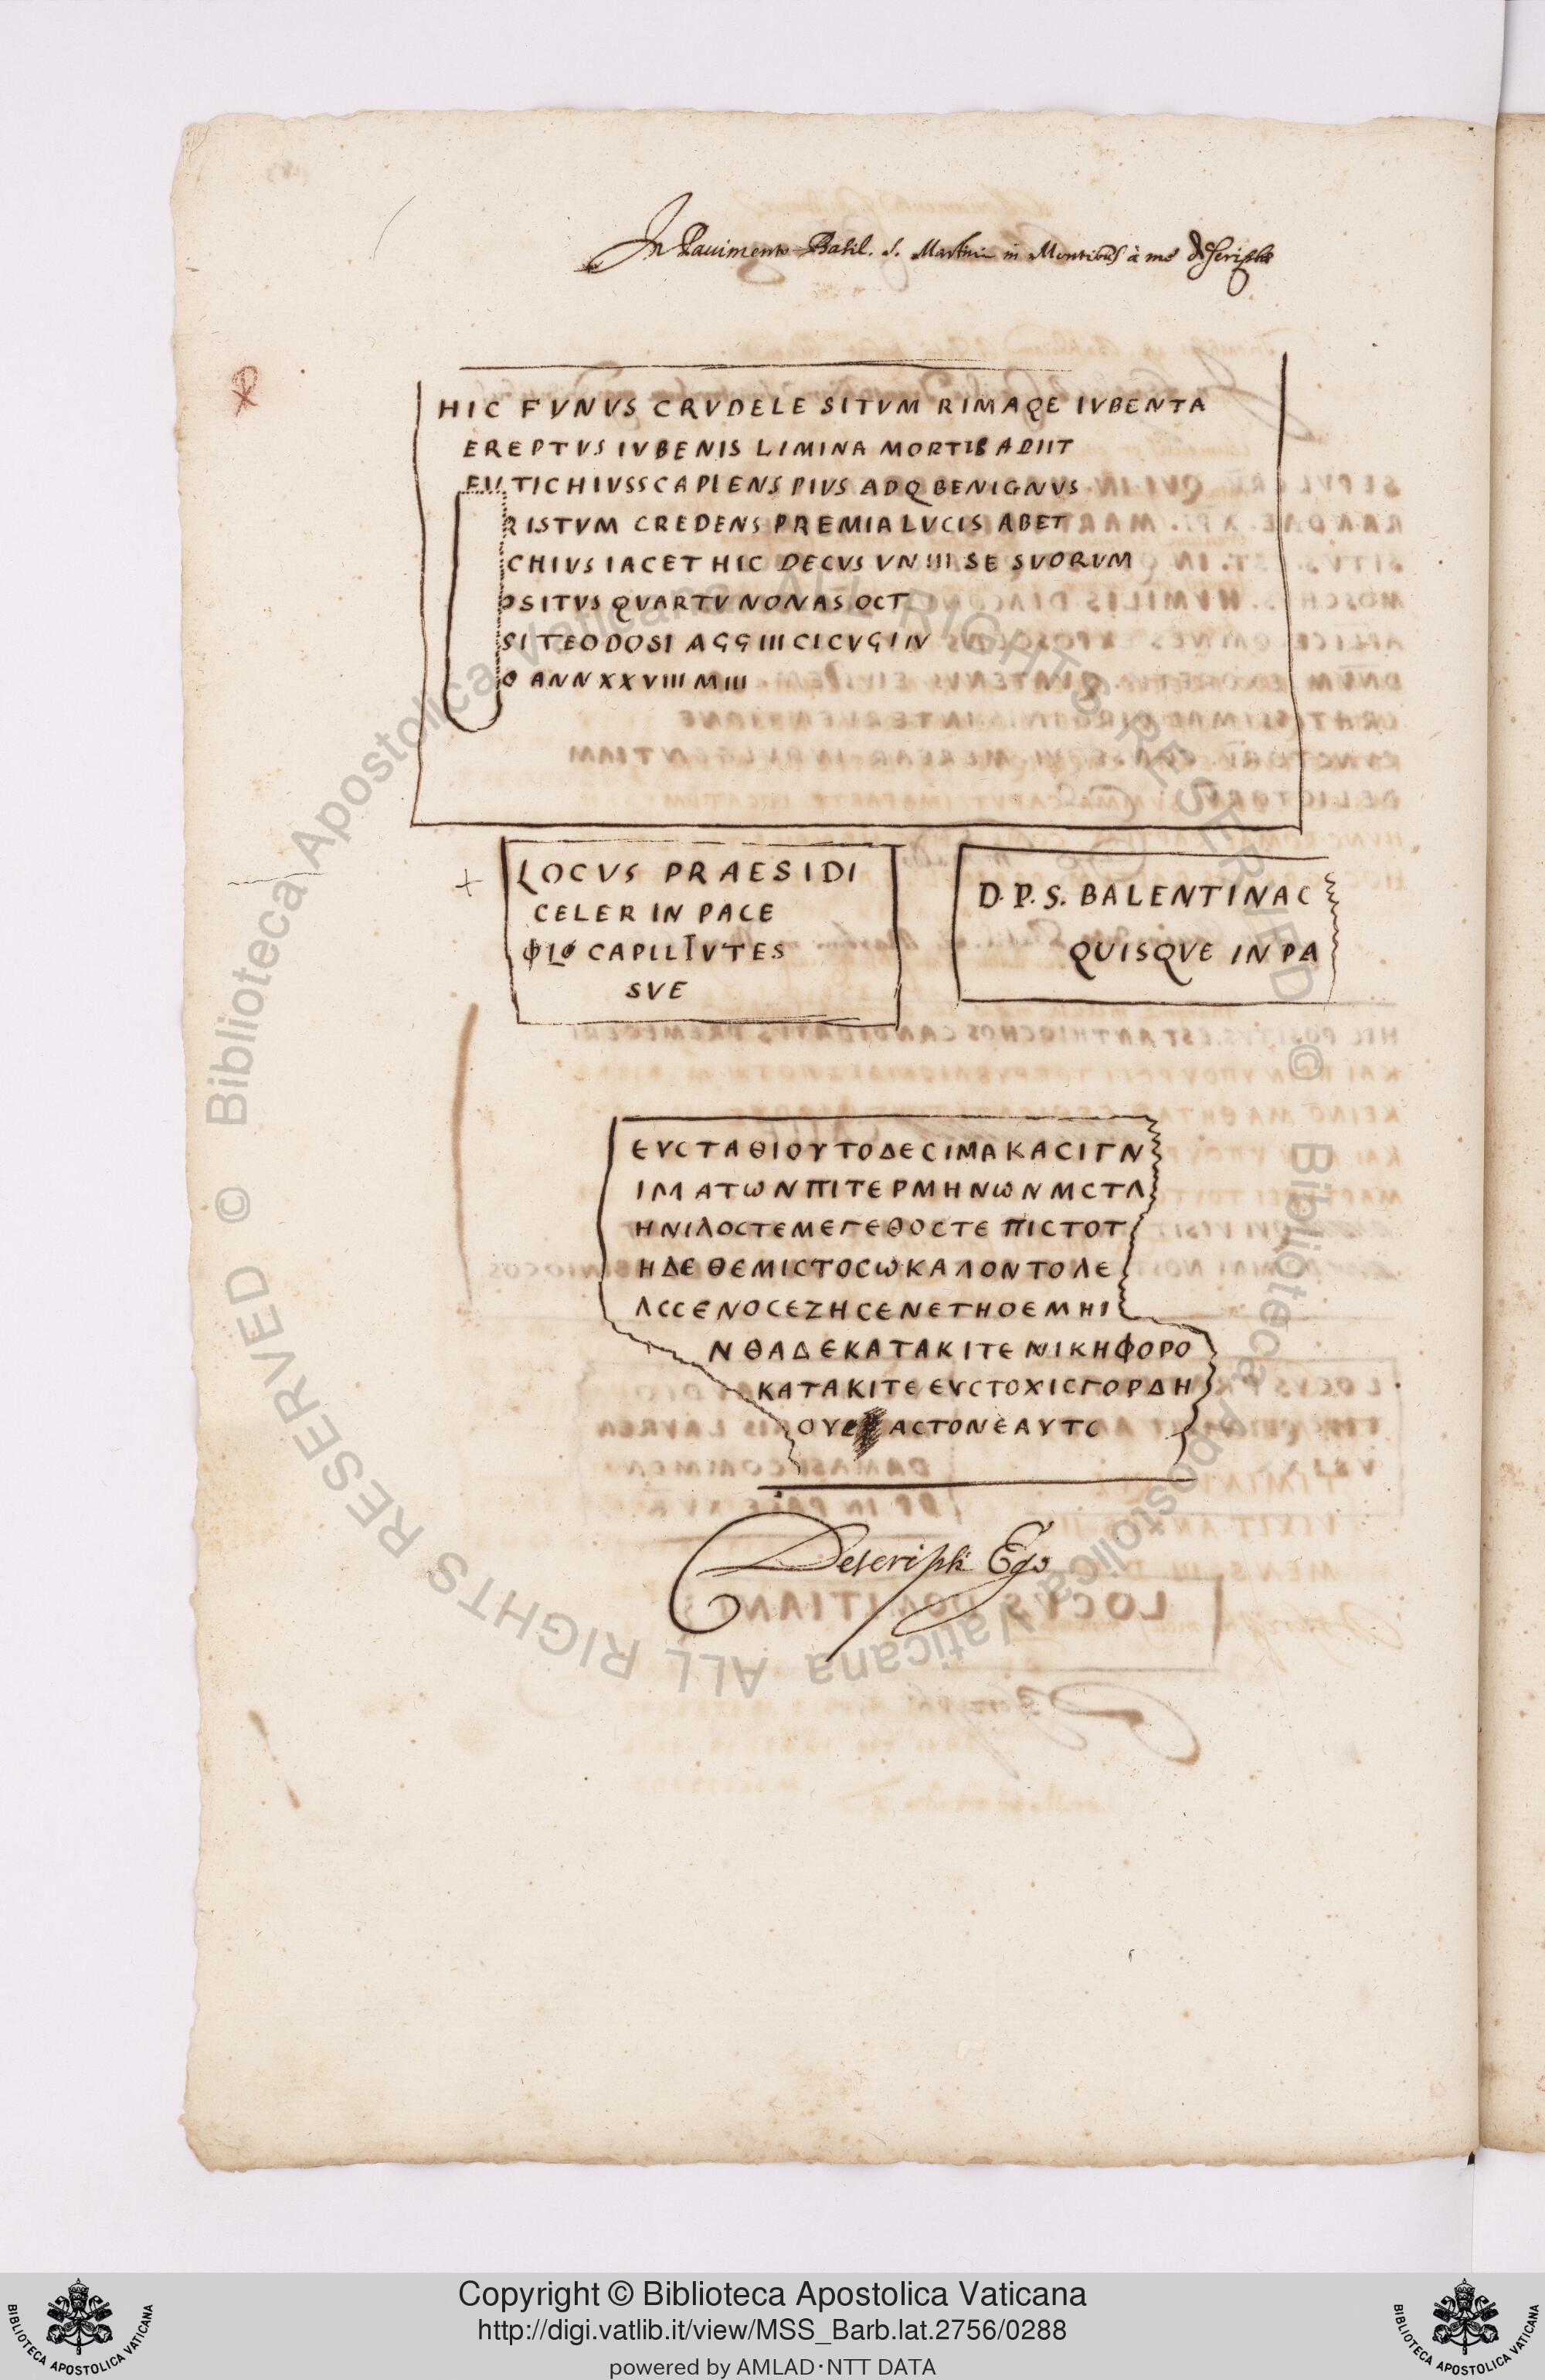 In Pavimento Basil. S. Martini in Montibus à me descripta
HIC FVNVS CRVDELE SITVM RIMAQE IVBENTA
EREPTVS IVBENIS LIMINA MORTIS ADIIT
EUTICHIVSSCAPIENS PIVS ADQ BENIGNVS
RISTVM CREDENS PREMIA LVCIS ABET
CHIVS IACET HIC DECVS VN III SE SVORVM
OSITVS QVARTV NONAS OCT
SI TEODOSI AGG III CICVGIN
O ANN XXVIII M III
LOCVS PRAESIDI
CELER IN PACE
SVE
D. P. S. BALENTINAC
QUISQVE IN PA
ΕΥCΤΑΘΙΟΥΤΟΔΕCΙΜΑΚΑCΙΓΝ
ΙΜΑΤωΝΠΙΤΕΡΜΗΝωΝΜCΤΛ
ΗΝΙΛΟCΤΕΜΕΓΕΘΟCΤΕΠΙCΤΟΤ
ΗΔΕΘΕΜΙCΤΟCωΚΑΛΟΝΤΟΛΕ
ΛCCΕΝΟCΕΖΗCΕΝΕΤΗΟΕΜΗΙ
ΝΘΑΔΕΚΑΤΑΚΙΤΕΝΙΚΗΦΟΡΟ
ΚΑΤΑΚΙΤΕΕΥCΤΟΧΙCΓΟΡΔΗ
ΑCΤΟΝΕΑΥΤC
Descripsi Ego
© Biblioteca Apostolica Vaticana ALL RIGHTS RESERVED © Biblioteca Apostolica Vaticana ALL RIGHTS RESERVED
Copyright © Biblioteca Apostolica Vaticana
http://digi.vatlib.it/view/MSS_Barb.lat.2756/0288
powered by AMLAD·NTT DATA
BIBLIOTECA APOSTOLICA VATICANA
BIBLIOTECA APOSTOLICA VATICANA